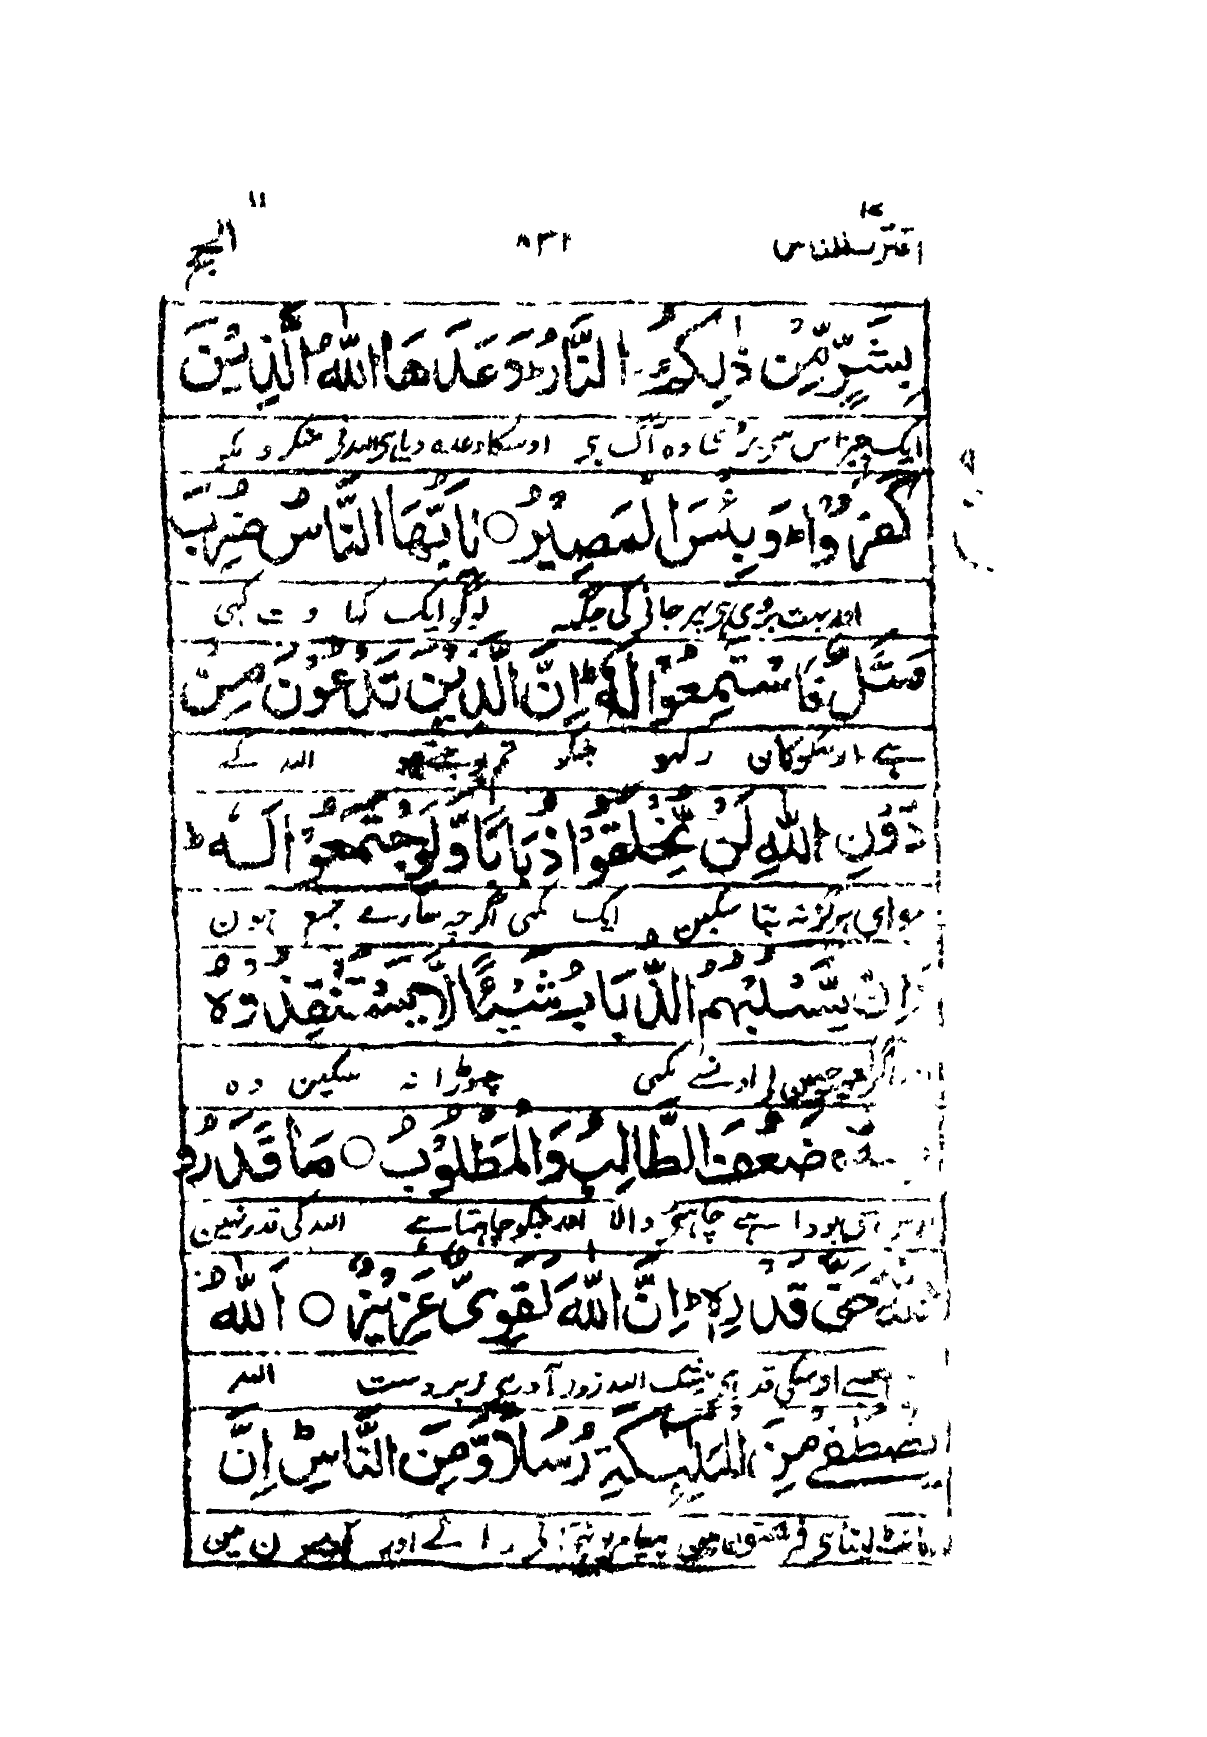 اقترب للناس ١٧ ٨٣٢ الحج
بِشَرٍّ مِّنْ ذٰلِكُمْ ؕ النَّارُ ؕ وَعَدَهَا اللّٰهُ الَّذِيْنَ
ایک چیز اس سی بری وہ آگ ہی اوسکا وعدہ دیا ہی اللہ نی منکرونکو
كَفَرُوْا ؕ وَبِئْسَ الْمَصِيْرُ ○ يٰاَيُّهَا النَّاسُ ضُرِبَ
اور بہت بری ہی پھر جانی کی جگہ لوگو ایک کہاوت کہی
مَثَلٌ فَاسْتَمِعُوْا لَهٗ ؕ اِنَّ الَّذِيْنَ تَدْعُوْنَ مِنْ
ہے اوسکو کان رکہو جنکو تم پوجتے ہو اللہ کے
دُوْنِ اللّٰهِ لَنْ يَّخْلُقُوْا ذُبَابًا وَّلَوِ اجْتَمَعُوْا لَهٗ ؕ
سوای ہرگز نہ بنا سکین ایک مکہی اگرچہ سارے جمع ہون
وَاِنْ يَّسْلُبْهُمُ الذُّبَابُ شَيْئًا لَّا يَسْتَنْقِذُوْهُ
اور اگر کچہ چہین لی اونسے مکہی چہوڑا نہ سکین وہ
مِنْهُ ؕ ضَعُفَ الطَّالِبُ وَالْمَطْلُوْبُ ○ مَا قَدَرُوا
بودا ہے چاہنی والا اور جنکو چاہتا ہے اللہ کی قدر نہین
اللّٰهَ حَقَّ قَدْرِهٖ ؕ اِنَّ اللّٰهَ لَقَوِيٌّ عَزِيْزٌ ○ اَللّٰهُ
جیسے اوسکی قدر ہی بیشک اللہ زور آور ہی زبردست اللہ
يَصْطَفِيْ مِنَ الْمَلٰٓئِكَةِ رُسُلًا وَّمِنَ النَّاسِ ؕ اِنَّ
چہانٹ لیتا ہی فرشتون مین پیغام پہنچانی والے اور آدمیون مین